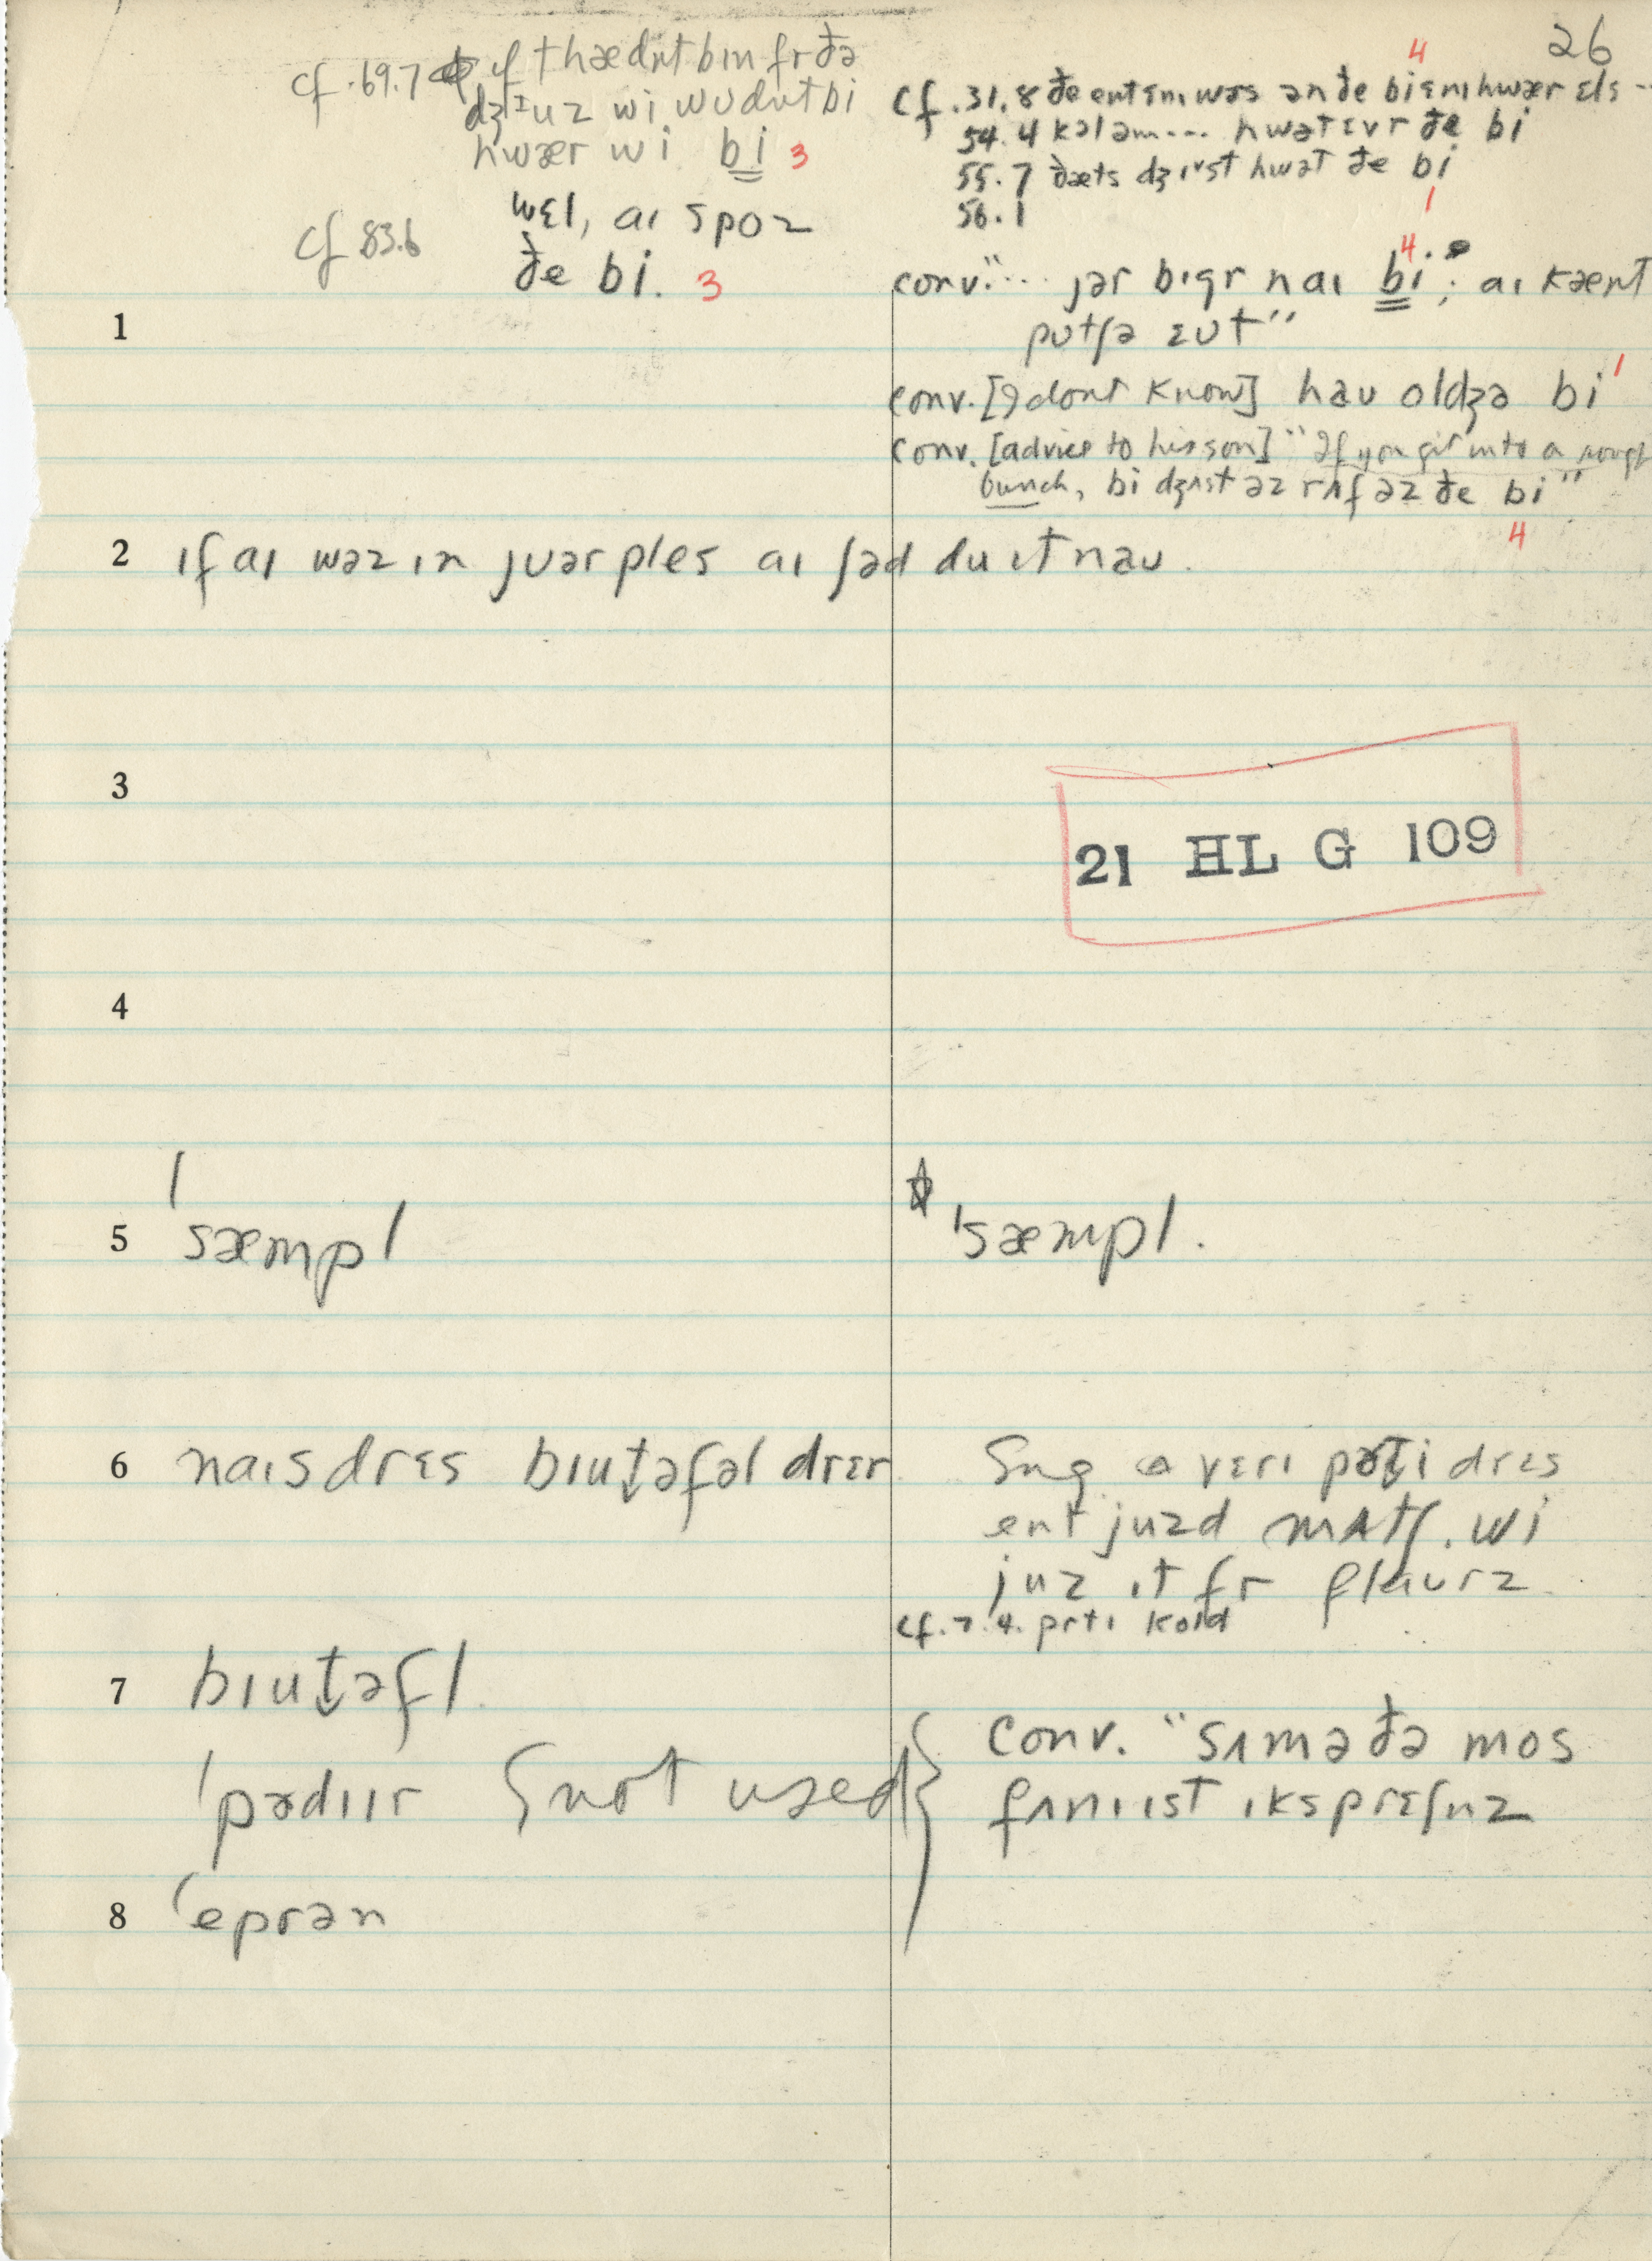 26
cf. 69.7 ɪf ɪt hædnt bɪn fr ðə
dʒɪuz wi wudnt bi
hwær wi bi 3
cf 83.6 wɛl, aɪ spoz
ðe bi. 3
4
cf. 31.8 ðe ent ɛnɪ wəs ən ðe bi ɛnɪhwær ɛls --
54.4 kələm... hwətɛvr ðe bi
55.7 ðæts dʒɪst hwət ðe bi
56.1 1
4
conv. "... jər bɪgr n aɪ bi; aɪ kænt
putʃə ɛut"
1
conv. [I dont know] hau oldʒə bi
conv. [advice to his son] "If you git into a rough
bunch, bi dʒʌst əz rʌf əz ðe bi"
4
1
2 ɪf aɪ wəz ɪn juər ples aɪ ʃəd du ɪt nau.
3
21 HL G 109
4
5 ˈsæmpl
ˈsæmpl.
6 naɪs drɛs bɪut̬əfəl drɛr
ə vɛrɪ pət̬i drɛs
ent juzd mʌtʃ. wi
juz ɪt fr flaurz.
cf. 7.4. prtɪ kold
7 bɪut̬əfl.
ˈpədɪɪr not used
conv. "sʌm ə ðə mos
fʌnɪɪst ɪksprɛʃnz
8 ˈeprən